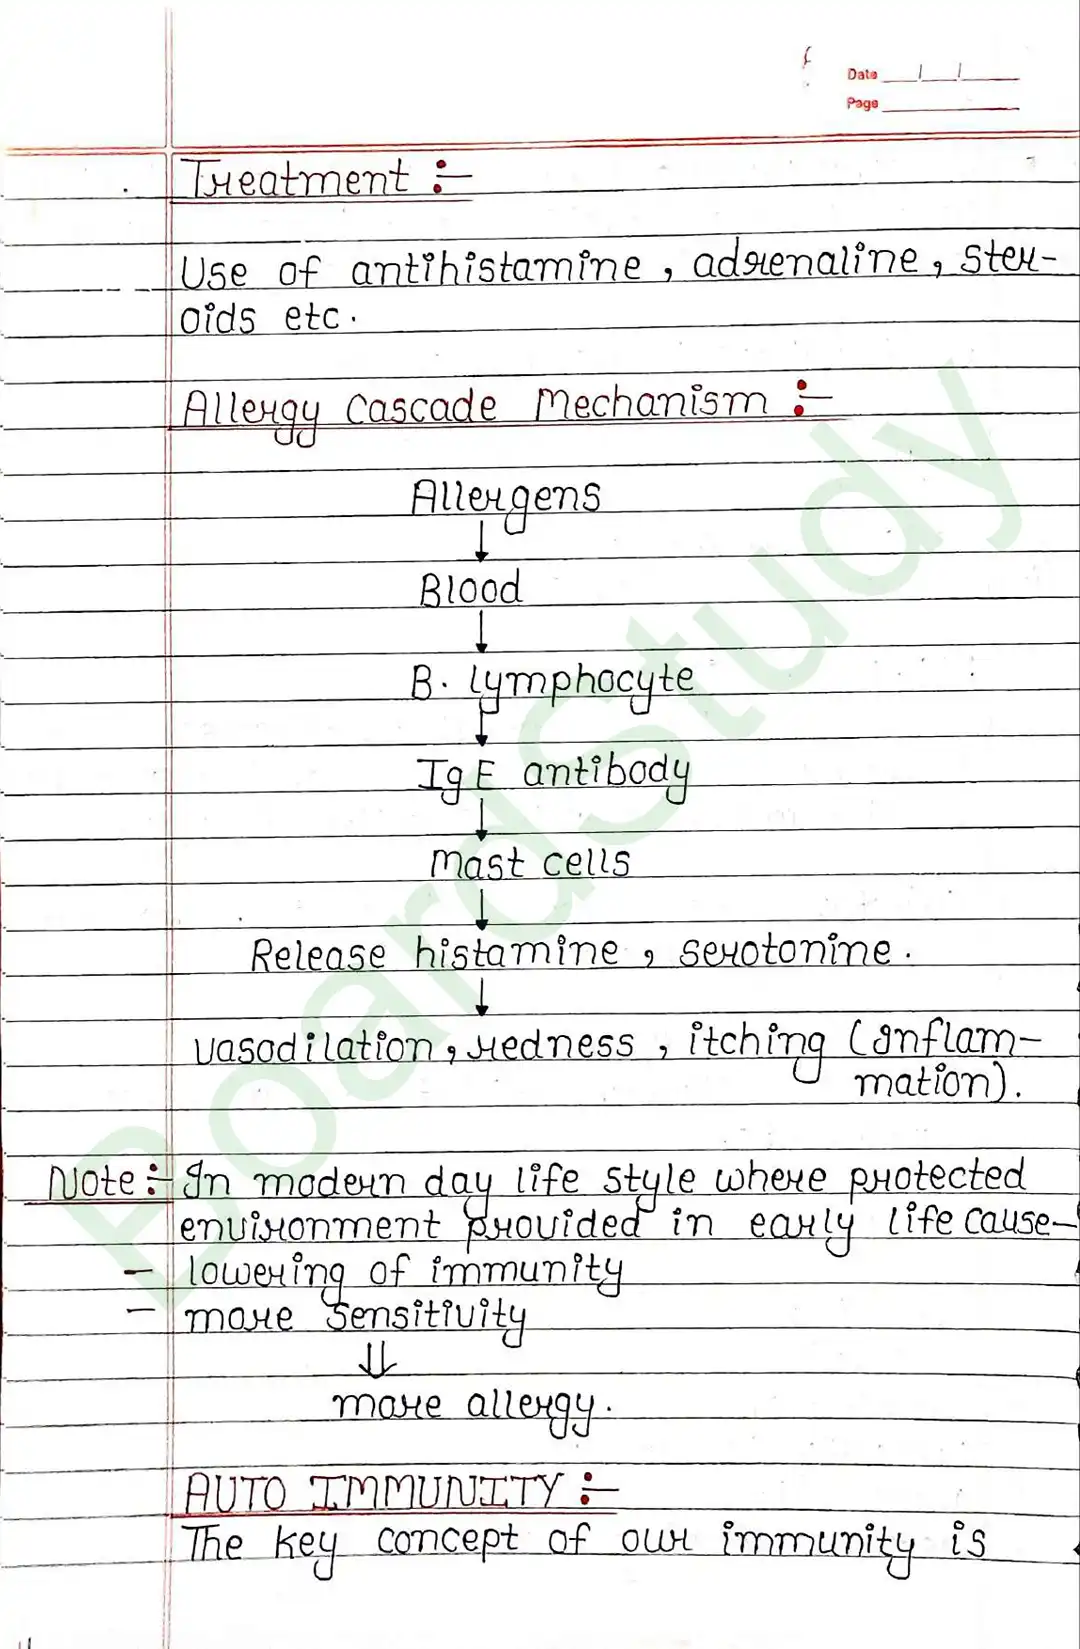 Date
Page
Treatment :-
Use of antihistamine, adrenaline, ster-
oids etc.
Allergy Cascade Mechanism :-
Allergens
↓
Blood
↓
B. lymphocyte
↓
IgE antibody
↓
Mast cells
↓
Release histamine, serotonine.
↓
vasodilation, redness, itching (Inflam-
mation).
Note :- In modern day life style where protected
environment provided in early life cause-
- lowering of immunity
- more sensitivity
⇓
more allergy.
AUTO IMMUNITY :-
The key concept of our immunity is
BoardStudy